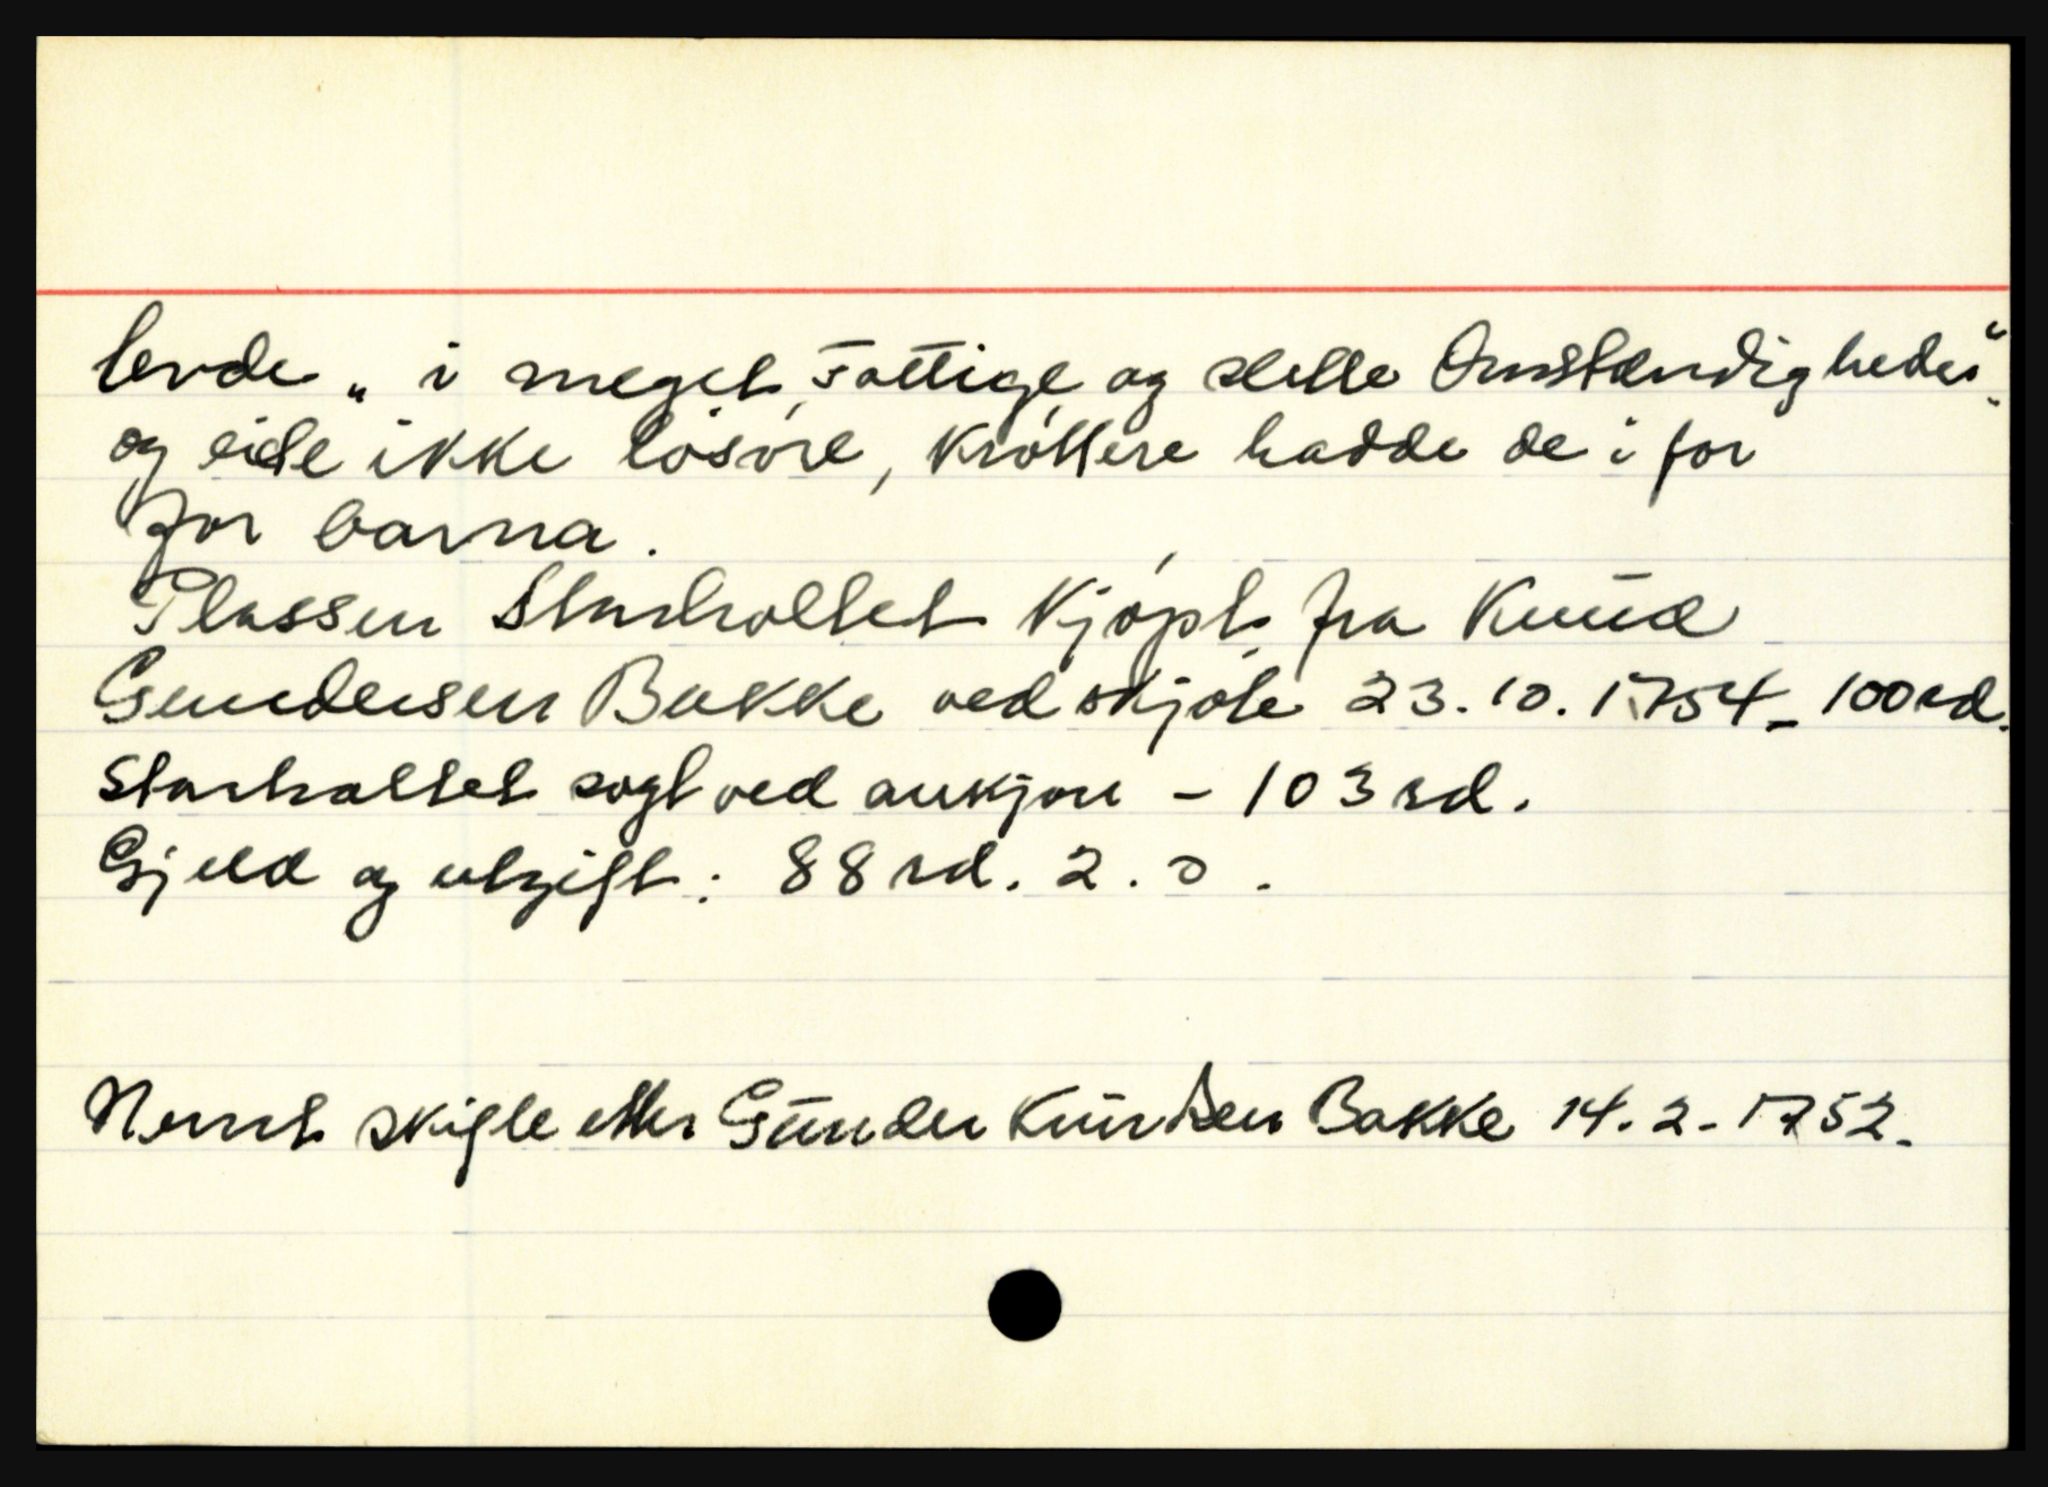 levde „i meget fattige og slette Omstændigheder“.
og eide ikke løsøre, krøttere hadde de i for
for barna.
Plassen Starholtet kjøpt fra Knud
Gundersen Bakke ved skjøte 23.10.1754 - 100 rd.
Starholtet sogt ved aukjon - 103 rd.
Gjeld og utgift: 88 rd. 2. 0.
Nevnt skifte etter Gunder Knudsen Bakke 14.2-1752.